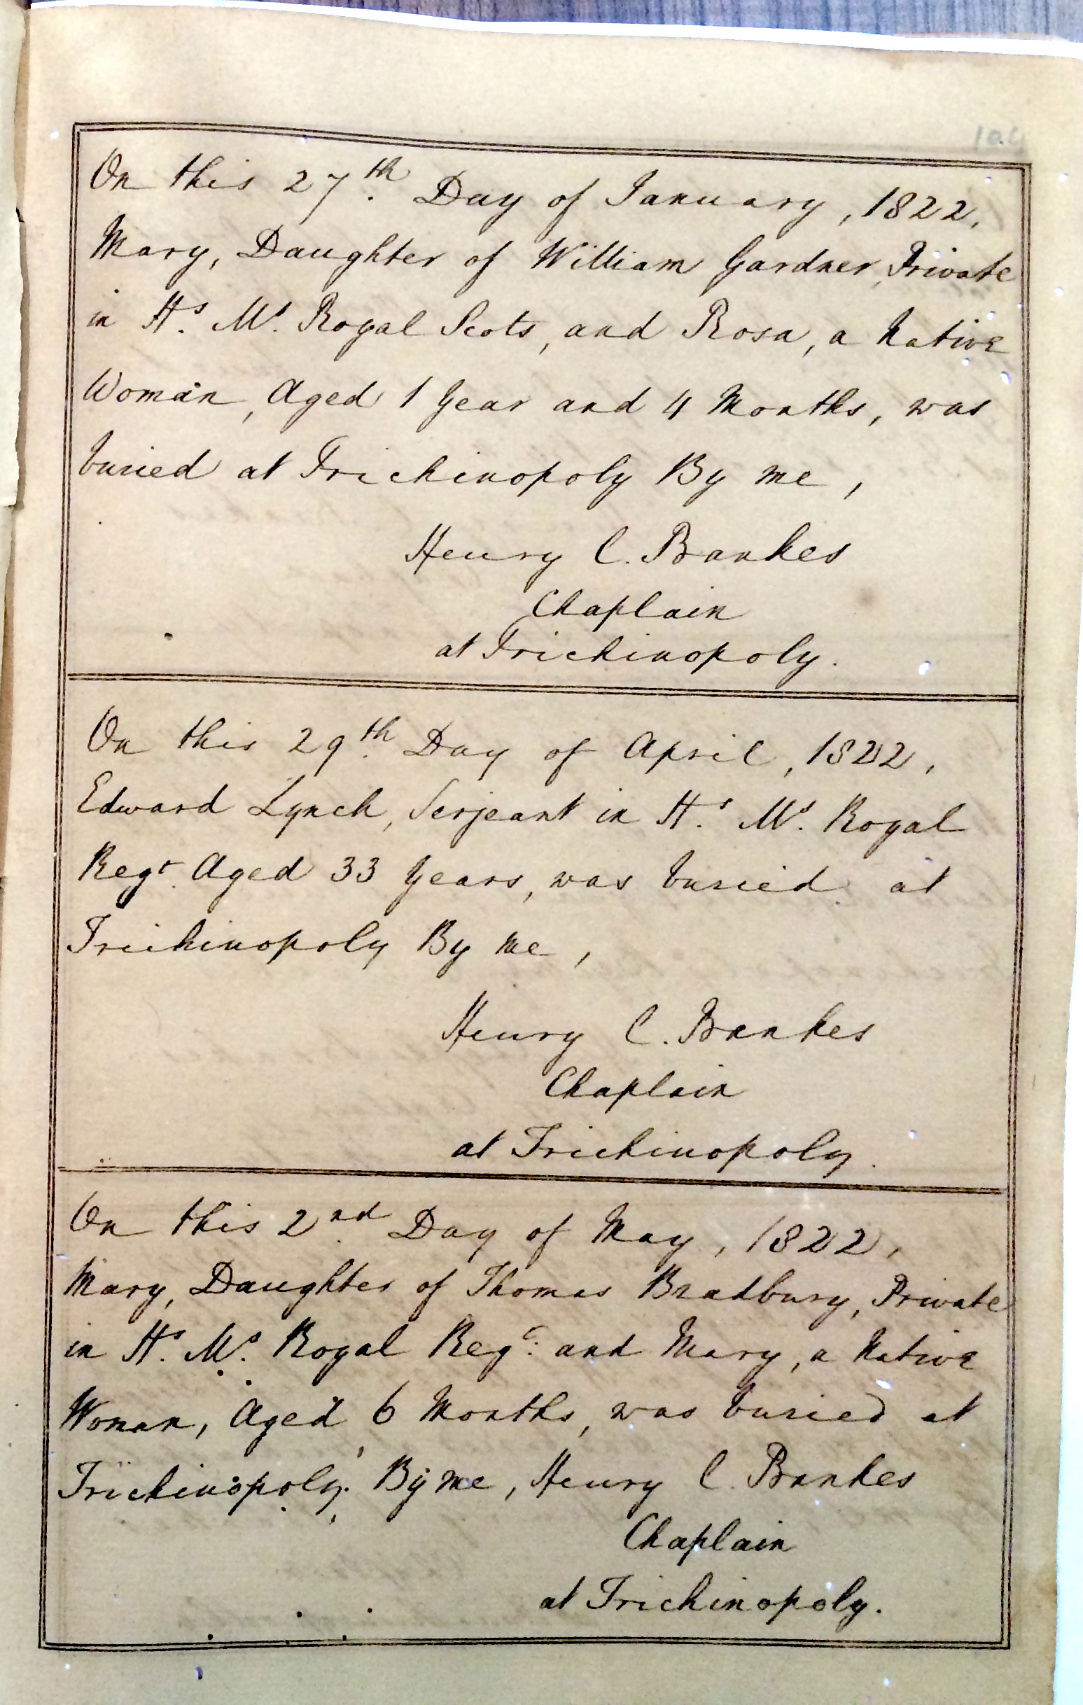 On this 27th. Day of January, 1822,
Mary, Daughter of William Gardner, Private
in Hs. Ms. Royal Scots, and Rosa, a Native
Woman, Aged 1 Year and 4 Months, was
buried at Trichinopoly By me,
Henry C. Bankes
Chaplain
at Trichinopoly.
On this 29th. Day of April, 1822,
Edward Lynch, Serjeant in Hs. Ms. Royal
Regt. Aged 33 Years, was buried at
Trichinopoly By me,
Henry C. Bankes
Chaplain
at Trichinopoly.
On this 2nd. Day of May, 1822,
Mary, Daughter of Thomas Bradbury, Private
in Hs. Ms. Royal Regt: and Mary, a Native
Woman, Aged 6 Months, was buried at
Trichinopoly. By me, Henry C. Bankes
Chaplain
at Trichinopoly.